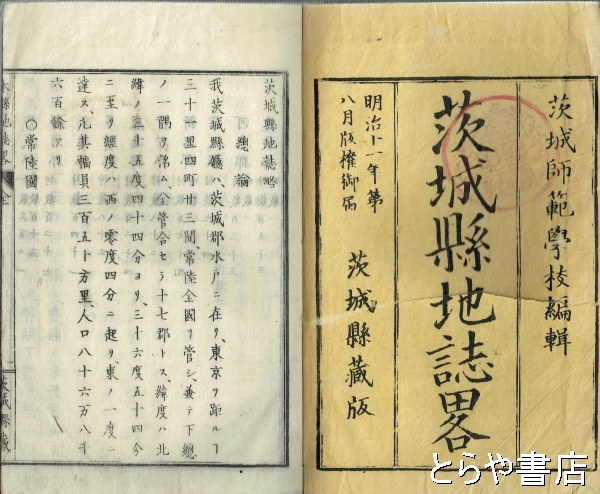 茨城師範學校編輯
茨城縣地誌畧
明治十一年第
八月版權御届
茨城縣藏版
茨城縣地誌略
總論
我茨城縣廳ハ、茨城郡水戸ニ在リ、東京ヲ距ルヿ
三十里四町廿三間、常陸全國ヲ管シ、兼テ下總
ノ一隅ヲ併ム、全管合セテ十七郡トス、緯度ハ北
緯ノ三十五度四十四分ヨリ、三十六度五十四分
ニ至リ、經度ハ西ノ零度四分ニ起リ、東ノ一度ニ
達ス、凡其幅員三百五十方里、人口八十六万八千
六百餘アリ
○常陸國
本縣地誌畧
全
茨城縣藏
とらや書店